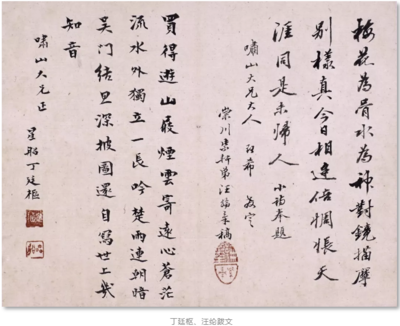 梅花為骨水為神對鏡描摩
別樣真今日相逢倍惆悵天
涯同是未歸人 小詩奉題
嘯山大兄大人 教定
崇川 弟汪 稿
買得遊山屐煙雲寄遠心蒼茫
流水外獨立一長吟楚雨連朝暗
吳门結思深披圖還自寫世上幾
知音
嘯山大兄正
丁廷樞
丁廷枢、汪绐跋文